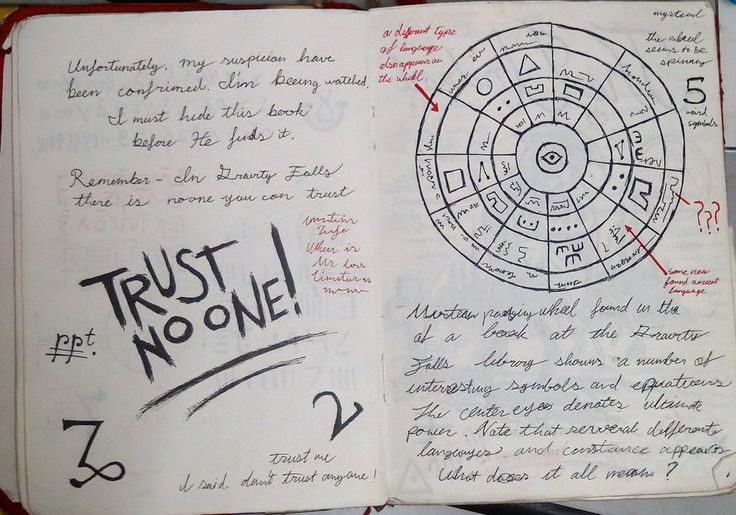 Unfortunately, my suspicion have
been confirmed. I'm beeing watched.
I must hide this book
before He finds it.
Remember - In Gravity Falls
there is no one you can trust
TRUST
NO ONE!
ppt.
2
trust me
I said don't trust anyone!
a different type
of language
also appear on
the wheel.
mystical
the wheel
seems to be
spinning
5
weird
symbols
???
some new
found ancient
language
wheel found in the
of a book at the Gravity
Falls library shows a number of
interesting symbols and equations
The center eyes denotes ultimate
power. Note that serveral different
languages and constance appears
What does it all mean?